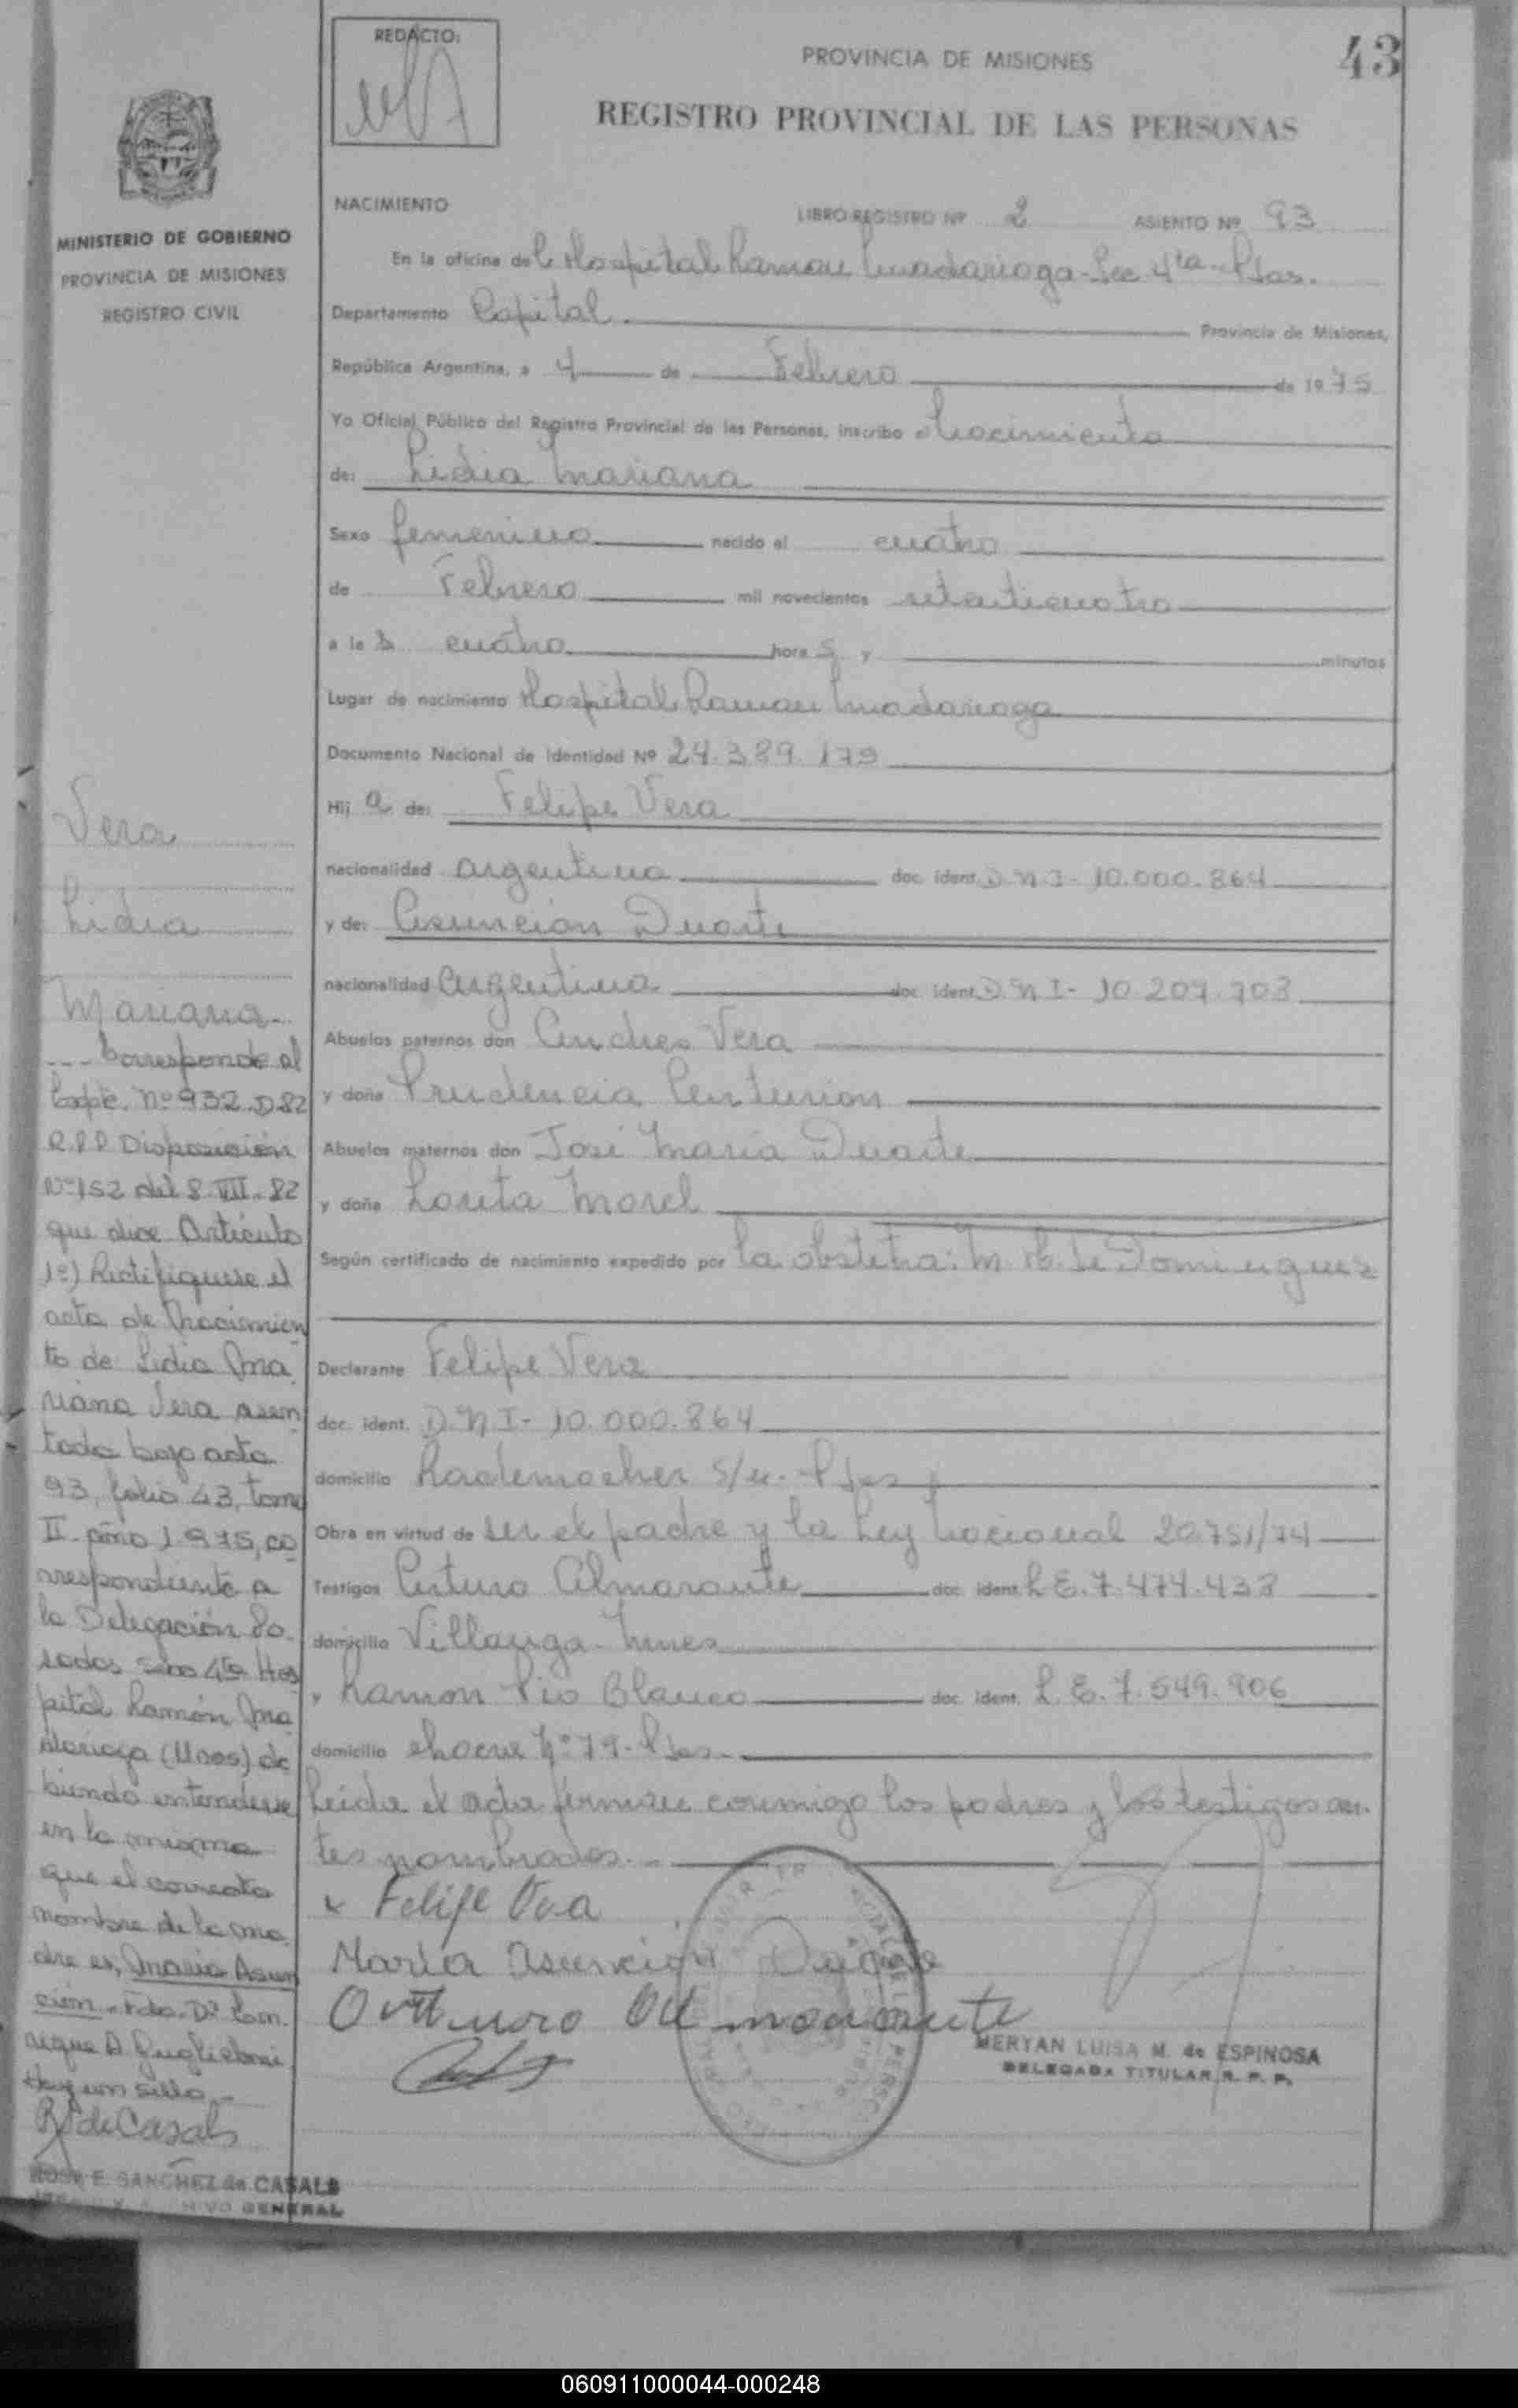 REDACTO:
PROVINCIA DE MISIONES
43
REGISTRO PROVINCIAL DE LAS PERSONAS
MINISTERIO DE GOBIERNO
PROVINCIA DE MISIONES
REGISTRO CIVIL
NACIMIENTO LIBRO REGISTRO Nº 2 ASIENTO Nº 93
En la oficina del Hospital Ramon Madariaga-Sec 4ta-Pdas.
Departamento Capital Provincia de Misiones,
República Argentina, a 4 de Febrero de 1975
Yo Oficial Público del Registro Provincial de las Personas, inscribo el Nacimiento
de: Lidia Mariana
Sexo femenino nacido el cuatro
de Febrero mil novecientos setenticuatro
a las cuatro horas y minutos
Lugar de nacimiento Hospital Ramon Madariaga
Documento Nacional de Identidad Nº 24.389.179
Hij a de: Felipe Vera
nacionalidad argentina doc. ident. D.N.I- 10.000.864
y de: Asuncion Duarte
nacionalidad Argentina doc. ident. D.N.I- 10.207.703
Abuelos paternos don Andres Vera
y doña Prudencia Centurion
Abuelos maternos don José Maria Duarte
y doña Loreta Morel
Según certificado de nacimiento expedido por la obstetra: M. H. de Dominguez
Declarante Felipe Vera
doc. ident. D.N.I- 10.000.864
domicilio Rademacher s/n.- Pdas
Obra en virtud de ser el padre y la Ley Nacional 20.751/74
Testigos Arturo Almarante doc. ident. L.E.7.474.438
domicilio Villa
y Ramon Pio Blanco doc. ident. L.E.7.549.906
domicilio Nº 79- Pdas.
Leida el acta firman conmigo los padres y los testigos an-
tes nombrados.-
x Felipe Vera
Maria Asuncion Duarte
MERYAN LUISA M. de ESPINOSA
DELEGADA TITULAR R. P. P.
Vera
Lidia
Mariana-
--- Corresponde al
Expte. Nº 932-D-82
R.P.P Disposición
Nº 152 del 8-VII-82
que dice Artículo
1º) Rectifiquese el
acta de Nacimien
to de Lidia Ma
riana Vera asen
tada bajo acta
93, folio 43, tomo
II año 1.975, co
rrespondiente a
la Delegación Po-
sadas Secc 4ta Hos
pital Ramón Ma
dariaga (Mnes) de
biendo entenderse
en la misma
que el correcto
nombre de la ma
dre es, Maria Asun
ción.- Fdo. Dª
Hay un sello.-
R S de Casals
ROSA E. SANCHEZ de CASALS
GENERAL
060911000044-000248